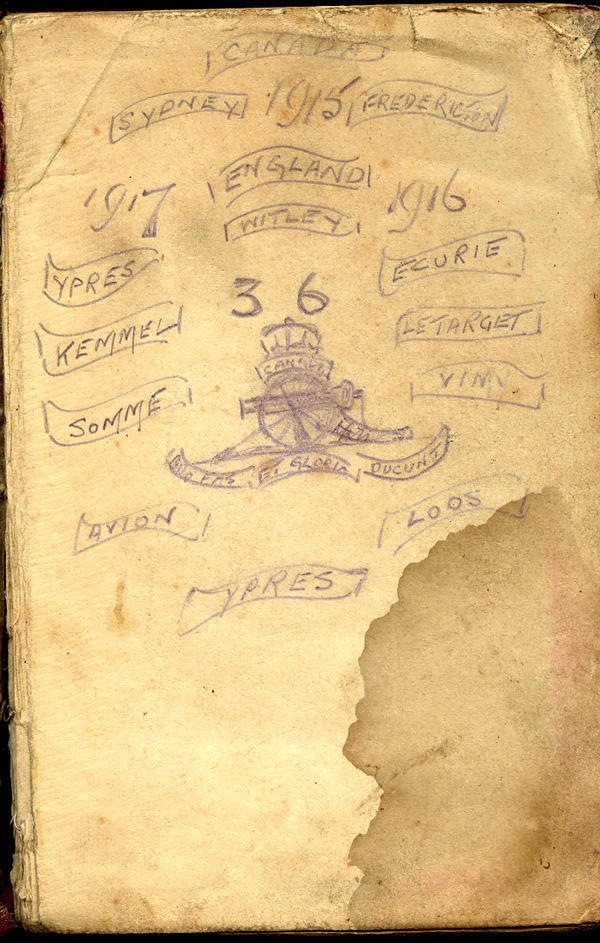 CANADA
SYDNEY 1915 FREDERICTON
ENGLAND
1917 WITLEY 1916
YPRES ECURIE
3 6
KEMMEL LETARGET
CANADA
SOMME VIMY
QUO FAS ET GLORIA DUCUNT
AVION LOOS
YPRES